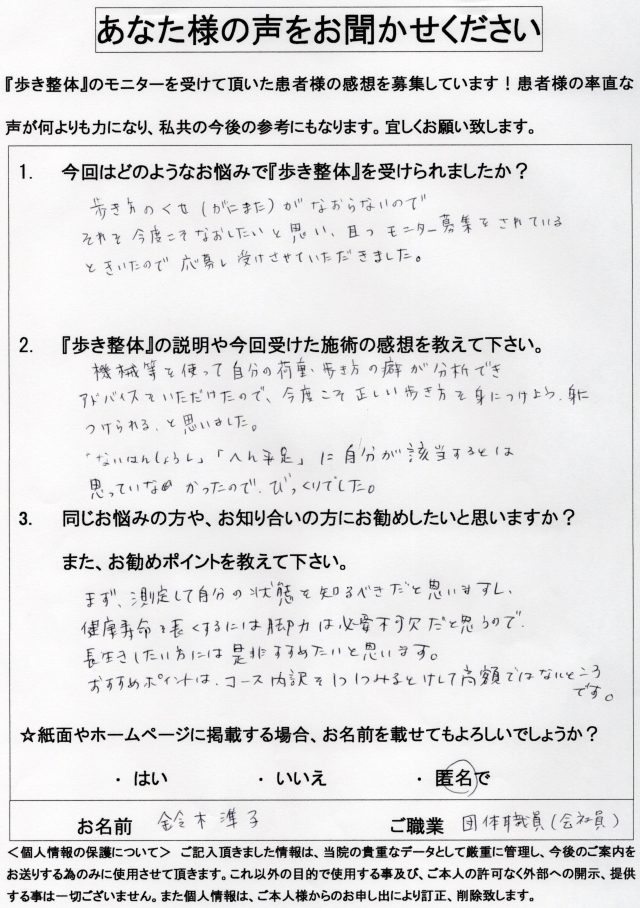 あなた様の声をお聞かせください
『歩き整体』のモニターを受けて頂いた患者様の感想を募集しています！患者様の率直な
声が何よりも力になり、私共の今後の参考にもなります。宜しくお願い致します。
1. 今回はどのようなお悩みで『歩き整体』を受けられましたか？
歩き方のくせ(がにまた)がなおらないので
それを今度こそなおしたいと思い、且つモニター募集をされている
ときいたので応募し受けさせていただきました。
2. 『歩き整体』の説明や今回受けた施術の感想を教えて下さい。
機械等を使って自分の荷重・歩き方の癖が分析でき
アドバイスをいただけたので、今度こそ正しい歩き方を身につけよう、身に
つけられる、と思いました。
「ないはんしょうし」「へん平足」に自分が該当するとは
思っていなかったので、びっくりでした。
3. 同じお悩みの方や、お知り合いの方にお勧めしたいと思いますか？
また、お勧めポイントを教えて下さい。
まず、測定して自分の状態を知るべきだと思いますし、
健康寿命を長くするには脚力は必要不可欠だと思うので、
長生きしたい方には是非すすめたいと思います。
おすすめポイントは、コース内訳を1つ1つみるとけして高額ではないところ
です。
☆紙面やホームページに掲載する場合、お名前を載せてもよろしいでしょうか？
・はい ・いいえ ・匿名で
お名前 鈴木準子 ご職業 団体職員(会社員)
＜個人情報の保護について＞ ご記入頂きました情報は、当院の貴重なデータとして厳重に管理し、今後のご案内を
お送りする為のみに使用させて頂きます。これ以外の目的で使用する事及び、ご本人の許可なく外部への開示、提供
する事は一切ございません。また個人情報は、ご本人様からのお申し出により訂正、削除致します。